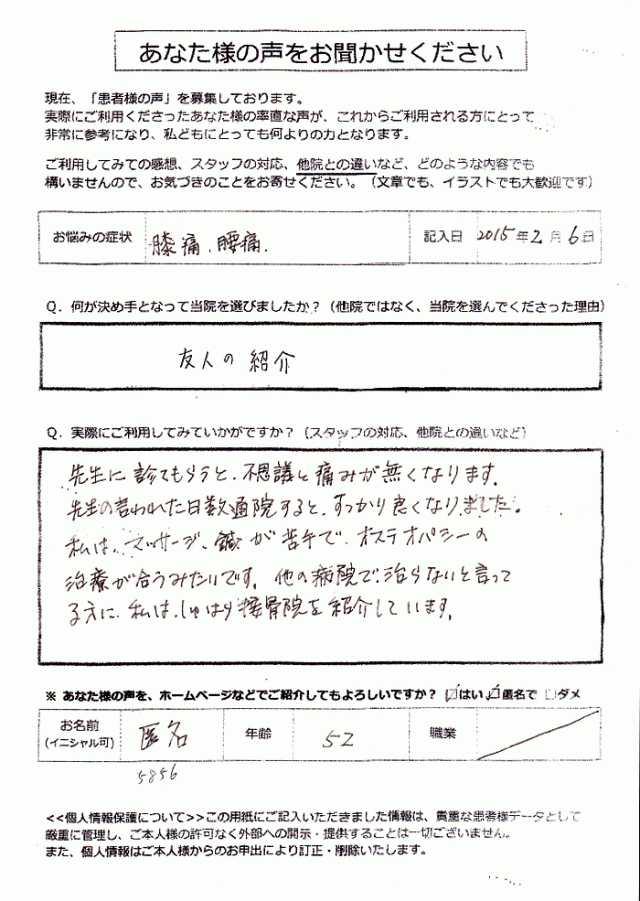 あなた様の声をお聞かせください
現在、「患者様の声」を募集しております。
実際にご利用くださったあなた様の率直な声が、これからご利用される方にとって
非常に参考になり、私どもにとっても何よりの力となります。
ご利用してみての感想、スタッフの対応、他院との違いなど、どのような内容でも
構いませんので、お気づきのことをお寄せください。（文章でも、イラストでも大歓迎です）
お悩みの症状 膝痛、腰痛. 記入日 2015年2月6日
Q．何が決め手となって当院を選びましたか？（他院ではなく、当院を選んでくださった理由）
友人の紹介
Q．実際にご利用してみていかがですか？（スタッフの対応、他院との違いなど）
先生に診てもらうと、不思議と痛みが無くなります。
先生の言われた日数通院すると、すっかり良くなりました。
私は、マッサージ、鍼が苦手で、オステオパシーの
治療が合うみたいです。他の病院で治らないと言って
る方に、私は、しゅはり接骨院を紹介しています。
※ あなた様の声を、ホームページなどでご紹介してもよろしいですか？ ☑はい ☑匿名で □ダメ
お名前 匿名 年齢 52 職業
(イニシャル可)
5856
<<個人情報保護について>>この用紙にご記入いただきました情報は、貴重な患者様データとして
厳重に管理し、ご本人様の許可なく外部への開示・提供することは一切ございません。
また、個人情報はご本人様からのお申出により訂正・削除いたします。